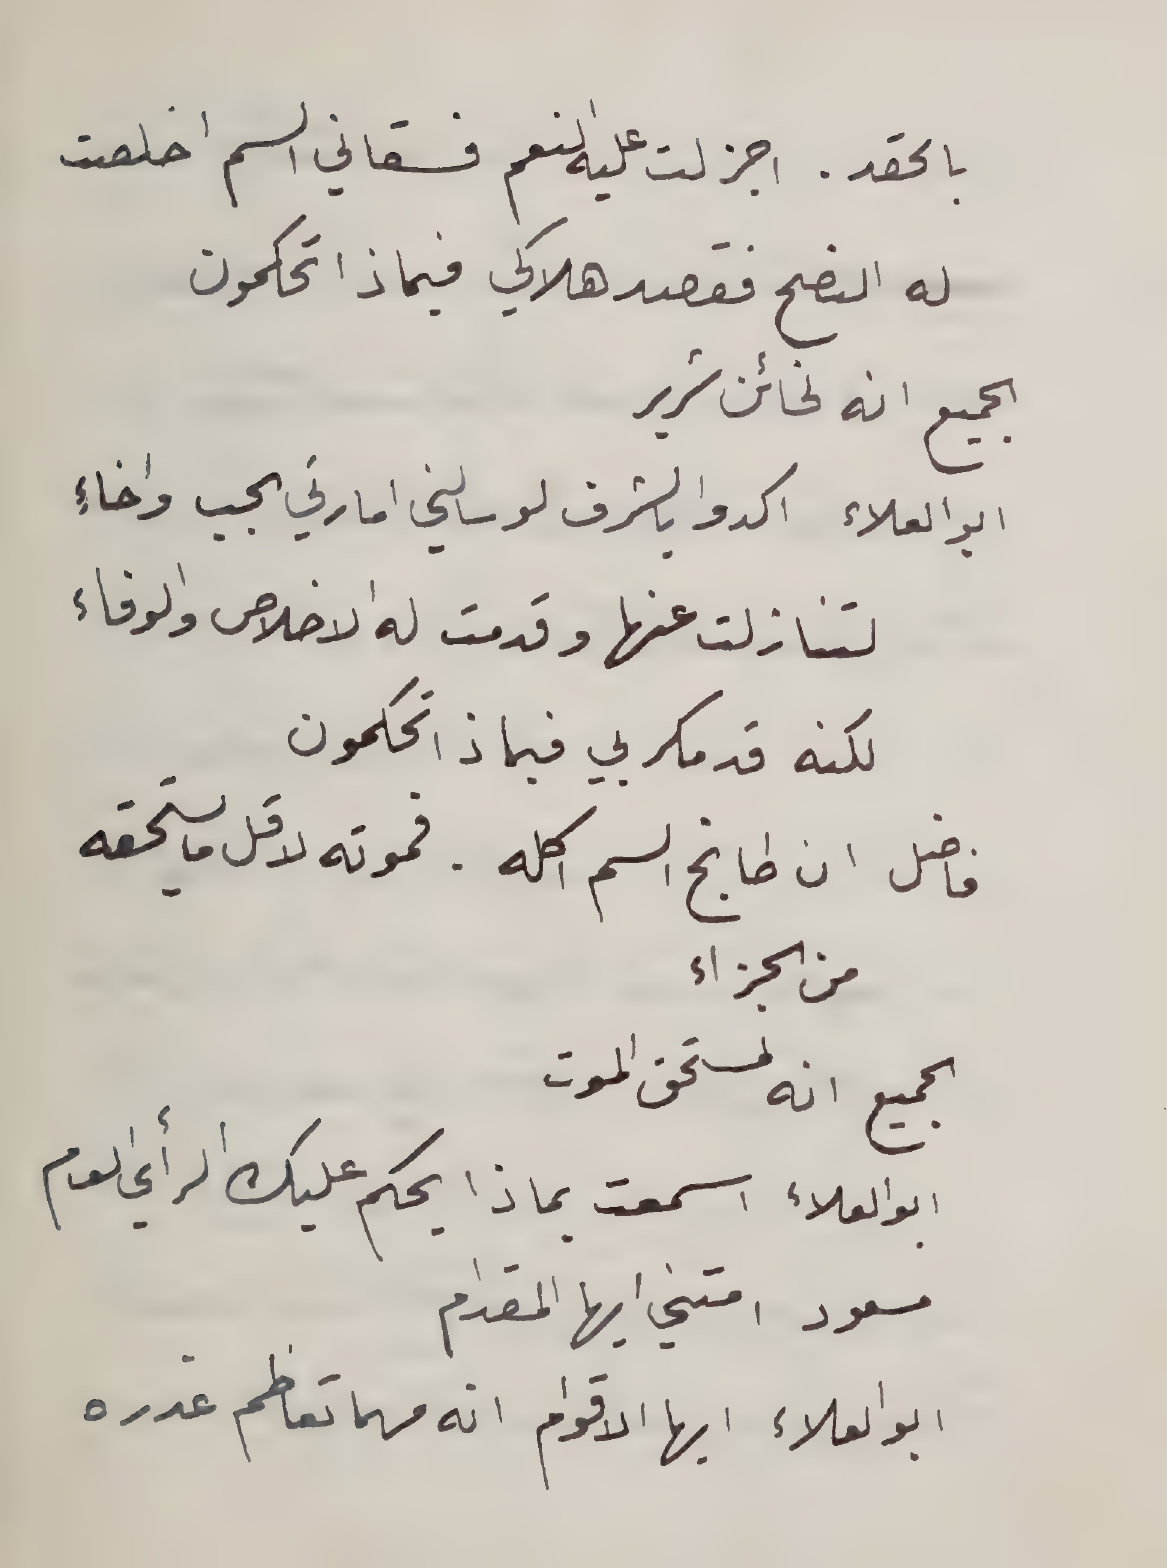 بالحقد . اجزلت عليه النعم فسقاني السم اخلصت
له النصح فقصد هلاكي فبماذا تحكمون
الجميع انه لخائن شرير
ابو العلاء اكدوا بالشرف لو سالني امارتي لجيب واخاءِ
لتنازلت عنها وقدمت له الاخلاص والوفاء
لكنه قد مكر بي فبماذا تحكمون
فاضل ان طابخ السم اكله . فموته لاقل ما يستحقه
من الجزاء
الجميع انه لمستحق الموت
ابو العلاء اسمعت بماذا يحكم عليك الرأي العام
مسعود امتني ايها المقدام
ابو العلاء ايها الاقوام انه مهما تعاظم غدره